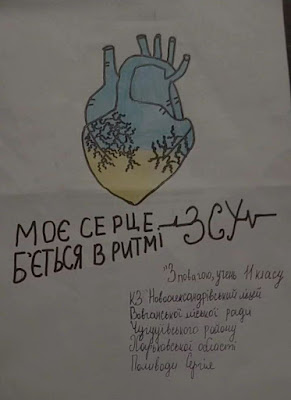 МОЄ СЕРЦЕ
Б'ЄТЬСЯ В РИТМІ ЗСУ
"З повагою, учень 11 класу
КЗ Новоолександрівський ліцей
Вовчанської міської ради
Чугуївського району
Харківської області
Половода Сергія